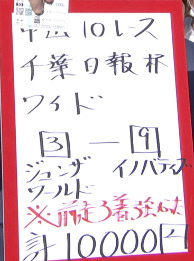 中山10レース
千葉日報杯
ワイド
3 — 9
ジュンザワールド イノバティブ
※前走3着強かった
計10000円